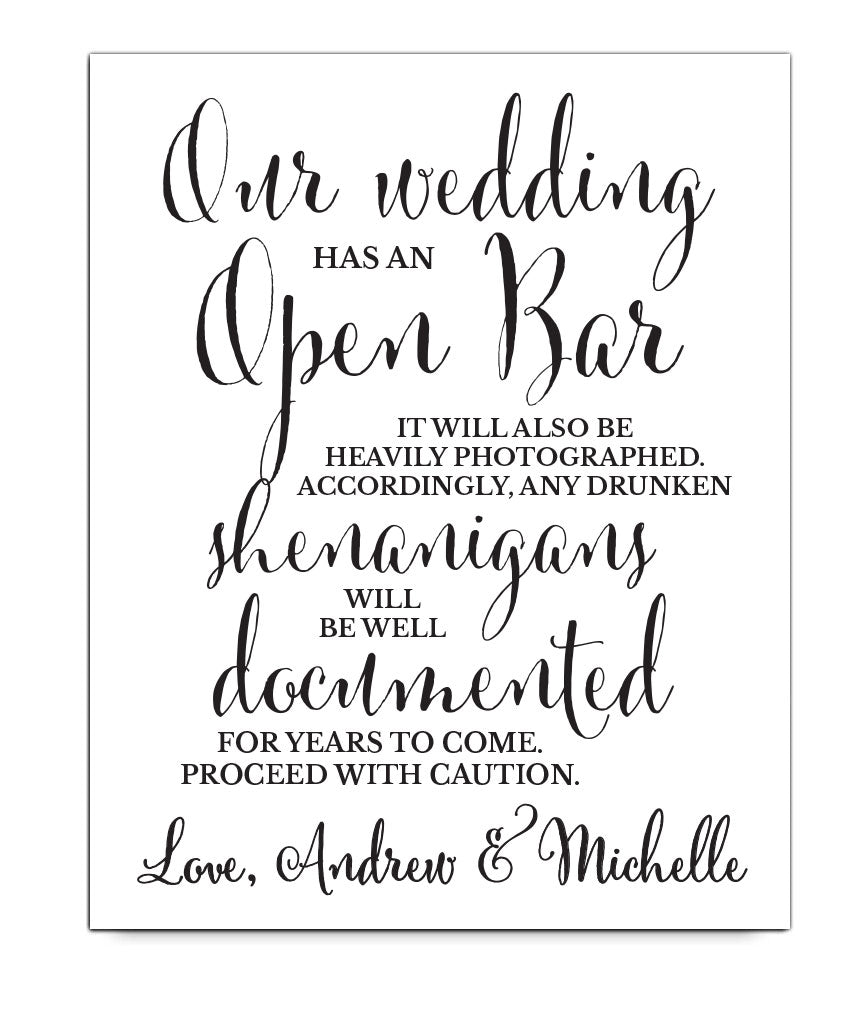 Our wedding
HAS AN
Open Bar
IT WILL ALSO BE
HEAVILY PHOTOGRAPHED.
ACCORDINGLY, ANY DRUNKEN
shenanigans
WILL
BE WELL
documented
FOR YEARS TO COME.
PROCEED WITH CAUTION.
Love, Andrew & Michelle